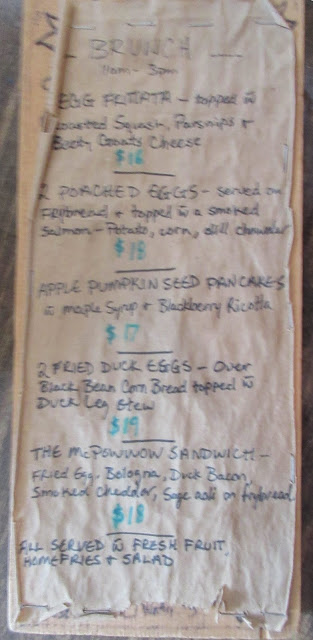 BRUNCH
11am - 3pm
EGG FRITTATA - topped w̄
roasted Squash, Parsnips +
Beets, Goats Cheese
$16
2 POACHED EGGS - served on
Frybread + topped w̄ a smoked
Salmon - Potato, corn, dill chowder
$18
APPLE PUMPKIN SEED PANCAKES
w̄ maple Syrup + Blackberry Ricotta
$17
2 FRIED DUCK EGGS - Over
Black Bean Corn Bread topped w̄
Duck Leg Stew
$19
THE McPOWWOW SANDWICH -
Fried Egg, Bologna, Duck Bacon,
Smoked Cheddar, Sage aoli on frybread
$18
ALL SERVED w̄ FRESH FRUIT,
HOMEFRIES + SALAD